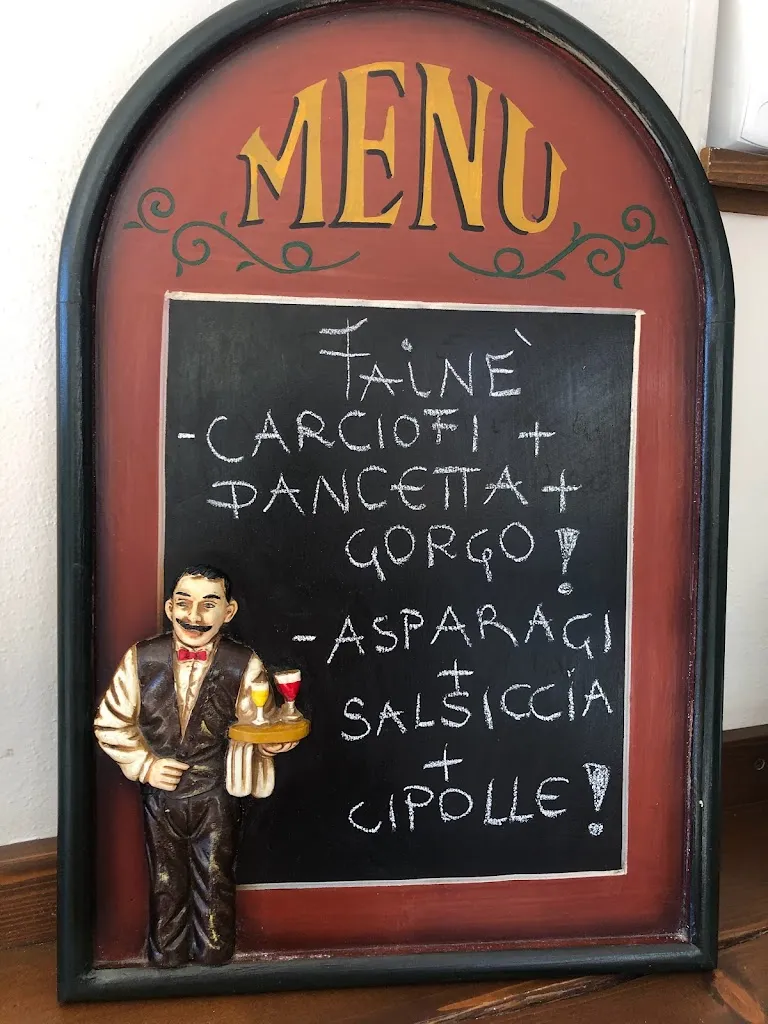 MENU
FAiNÈ
- CARCIOFI +
PANCETTA +
GORGO!
- ASPARAGI
+
SALSICCIA
+
CIPOLLE!